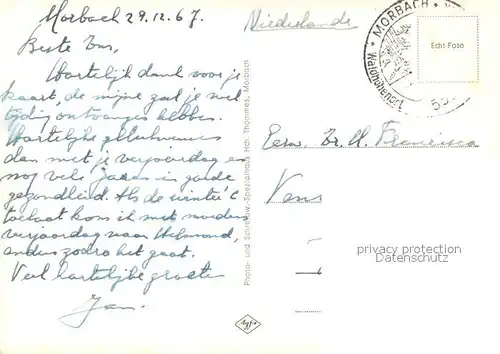 Morbach 29.12.67.
Niederlande
Beste Zus,
Hartelijk dank voor je
kaart, de mijne zal je wel
tijdig ontvangen hebben.
Hartelijke
dan met je verjaardag en
nog vele jaren in goede
gezondheid. Als de winter 't
toelaat kom ik met moeders
verjaardag naar Helmond,
anders zodra het gaat.
Veel hartelijke groeten
Jan.
Photo- und Schreibw.-Spezialhaus Hch. Thömmes, Morbach
Agfa
MORBACH
Echt Foto
55
Eerw. Zr. M. Francisca
privacy protection
DAFGARDS.COM